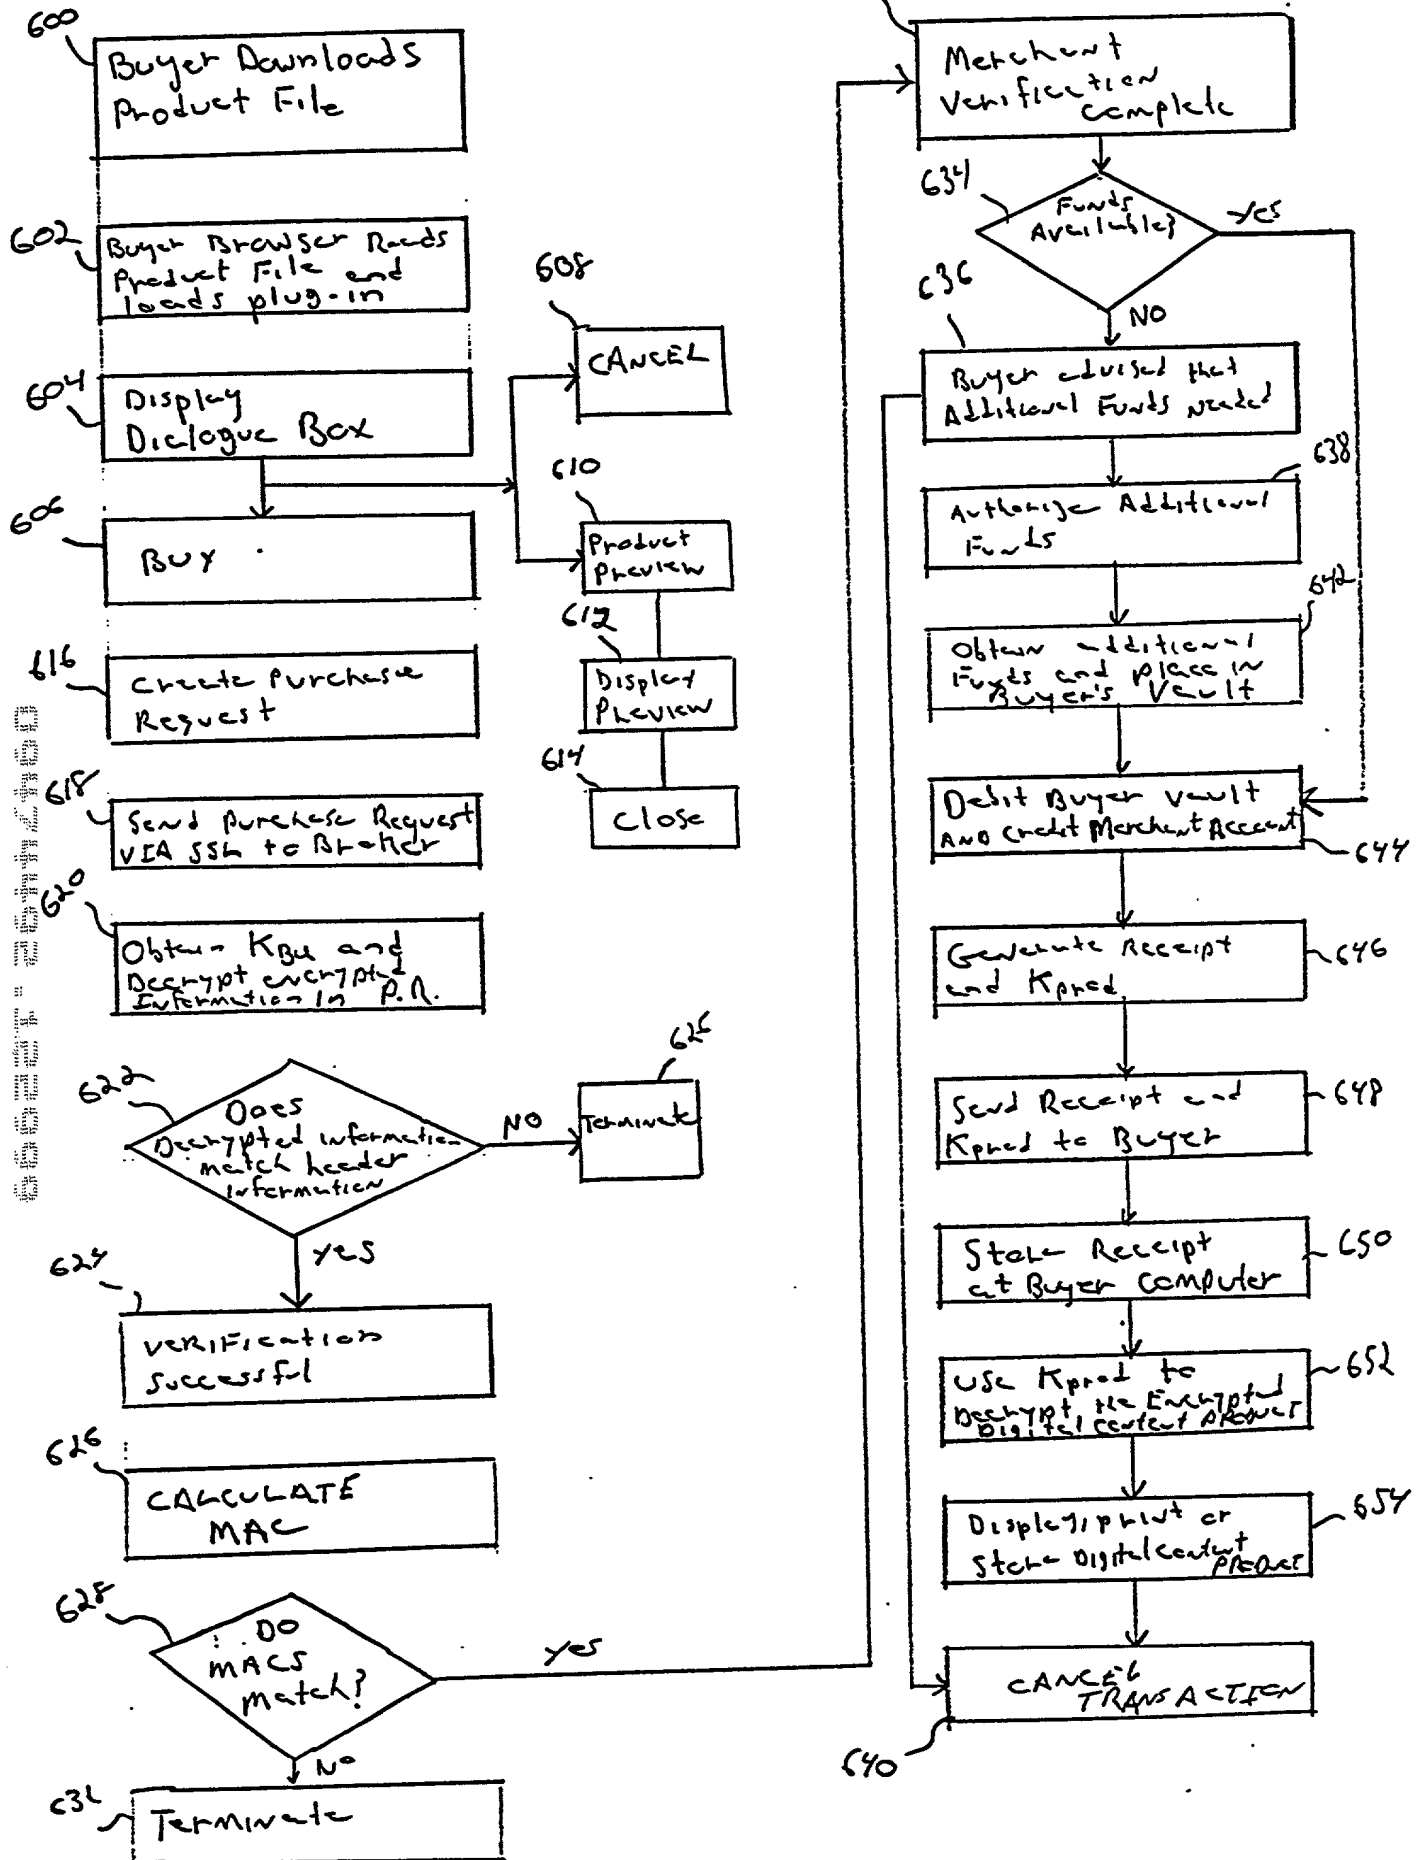 600
Buyer Downloads
Product File
602
Buyer Browser Reads
Product File and
loads plug-in
604
Display
Dialogue Box
608
CANCEL
606
BUY
610
Product
Preview
612
Display
Preview
614
Close
616
Create Purchase
Request
618
Send Purchase Request
VIA SSL to Broker
620
Obtain KBU and
Decrypt encrypted
Information In P.R.
622
Does
Decrypted information
match header
information
NO
Terminate
YES
624
Verification
Successful
626
CALCULATE
MAC
628
DO
MACS
Match?
Yes
No
Terminate
Merchant
Verification
Complete
634
Funds
Available?
Yes
NO
636
Buyer advised that
Additional Funds Needed
638
Authorize Additional
Funds
642
Obtain additional
Funds and place in
Buyer's Vault
Debit Buyer Vault
AND Credit Merchant Account
644
Generate Receipt
and Kprod
646
Send Receipt and
Kprod to Buyer
648
Store Receipt
at Buyer Computer
650
Use Kprod to
Decrypt the Encrypted
Digital Content PRODUCT
652
Display, print or
Store Digital Content
PRODUCT
654
CANCEL
TRANSACTION
640